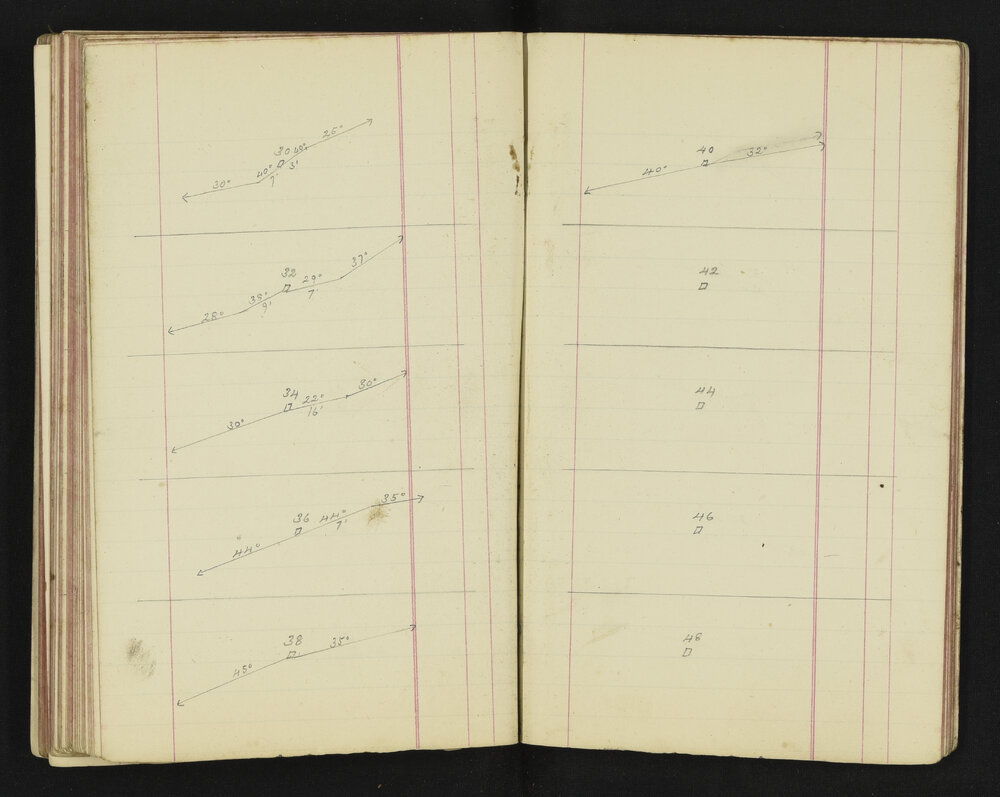 25°
30 40°
40° 3'
30° 9'
37°
32 29°
38° 7'
9'
28°
30°
34 22°
16'
30°
35°
36 44°
9'
44°
38 35°
45°
40 32°
40°
42
44
46
48